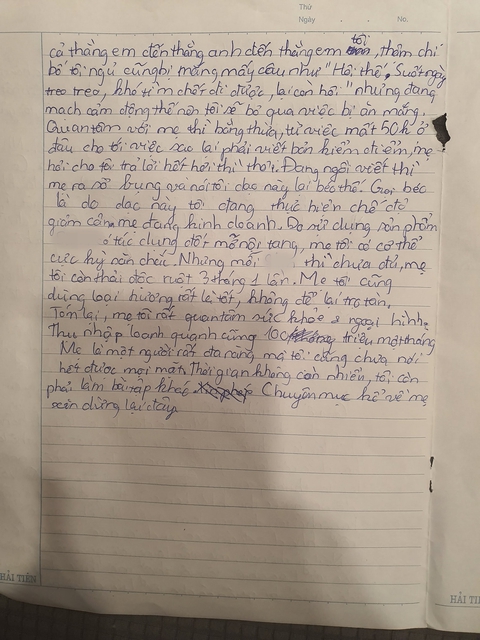 Thứ
Ngày . . No.
cả thằng em đến thằng anh đến thằng em tôi, thậm chí
bố tôi ngủ cũng bị mắng mấy câu như "Hôi thế, suốt ngày
treo treo, khó tìm chết đi được, lại còn hôi" nhưng đang
mạch cảm động thế nên tôi sẽ bỏ qua việc bị ăn mắng.
Quan tâm với mẹ thì bằng thừa, từ việc mất 50k ở
đâu cho tới việc sao lại phải viết bản kiểm điểm, mẹ
hỏi cho tôi trả lời hết hơi thì thôi. Đang ngồi viết thì
mẹ ra sờ bụng và nói tôi dạo này lại béo thế. Gọi béc
là do dạc này tôi đang thực hiện chế độ
giảm cân mẹ đang kinh doanh. Do sử dụng sản phẩm
có tác dụng đốt mỡ nội tạng, mẹ tôi có cơ thể
cực kỳ săn chắc. Nhưng mỗi thì chưa đủ, mẹ
tôi còn thải độc ruột 3 tháng 1 lần. Mẹ tôi cũng
dùng loại hương rất là tốt, không để lại tro tàn.
Tóm lại, mẹ tôi rất quan tâm sức khỏe & ngoại hình.
Thu nhập loanh quanh cũng 10 triệu một tháng
Mẹ là một người rất đa năng mà tôi cũng chưa nói
hết được mọi mặt. Thời gian không còn nhiều, tôi còn
phải làm bài tập khác. Chuyên mục kể về mẹ
xin dừng lại đây
HẢI TIẾN
HẢI TIẾ